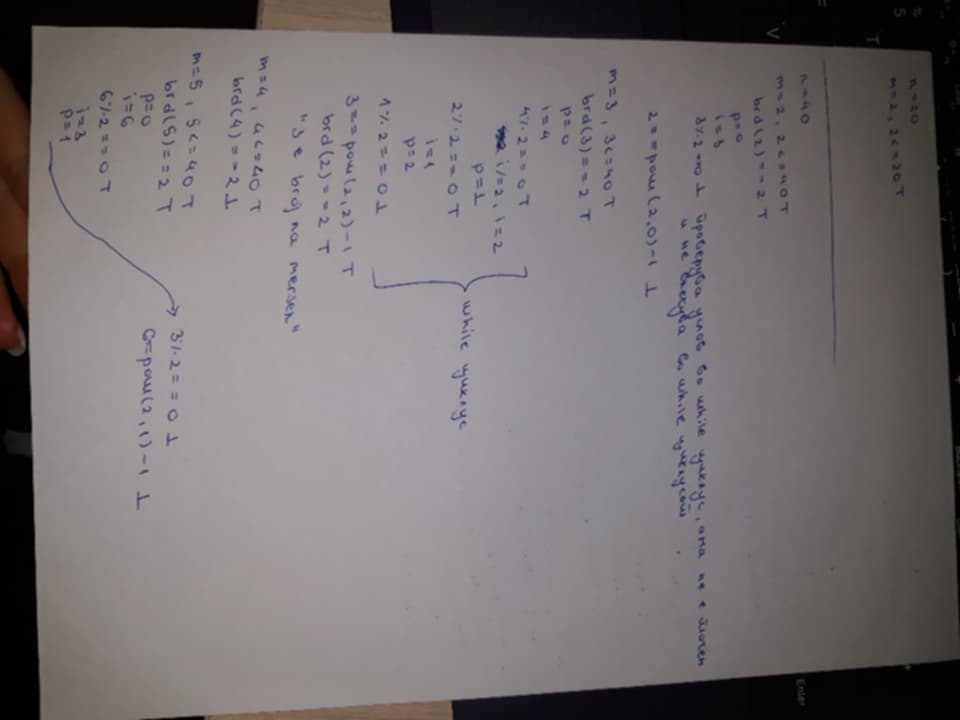 n=20
m=2, 2<=20 T
n=40
m=2, 2<=40 T
brd(2)==2 T
p=0
i=3
3%2==0 ⊥ проверува услов во while циклус, ама не е точен
и не влегува во while циклусот.
2==pow(2,0)-1 ⊥
m=3, 3<=40 T
brd(3)==2 T
p=0
i=4
4%2==0 T
i/=2, i=2
p=1
2%2==0 T
i=1
p=2
1%2==0 ⊥
while циклус
3==pow(2,2)-1 T
brd(2)==2 T
"3 e broj na mersen"
m=4, 4<=40 T
brd(4)==2 ⊥
m=5, 5<=40 T
brd(5)==2 T
p=0
i=6
6%2==0 T
i=3
p=1
3%2==0 ⊥
5=pow(2,1)-1 ⊥
Enter